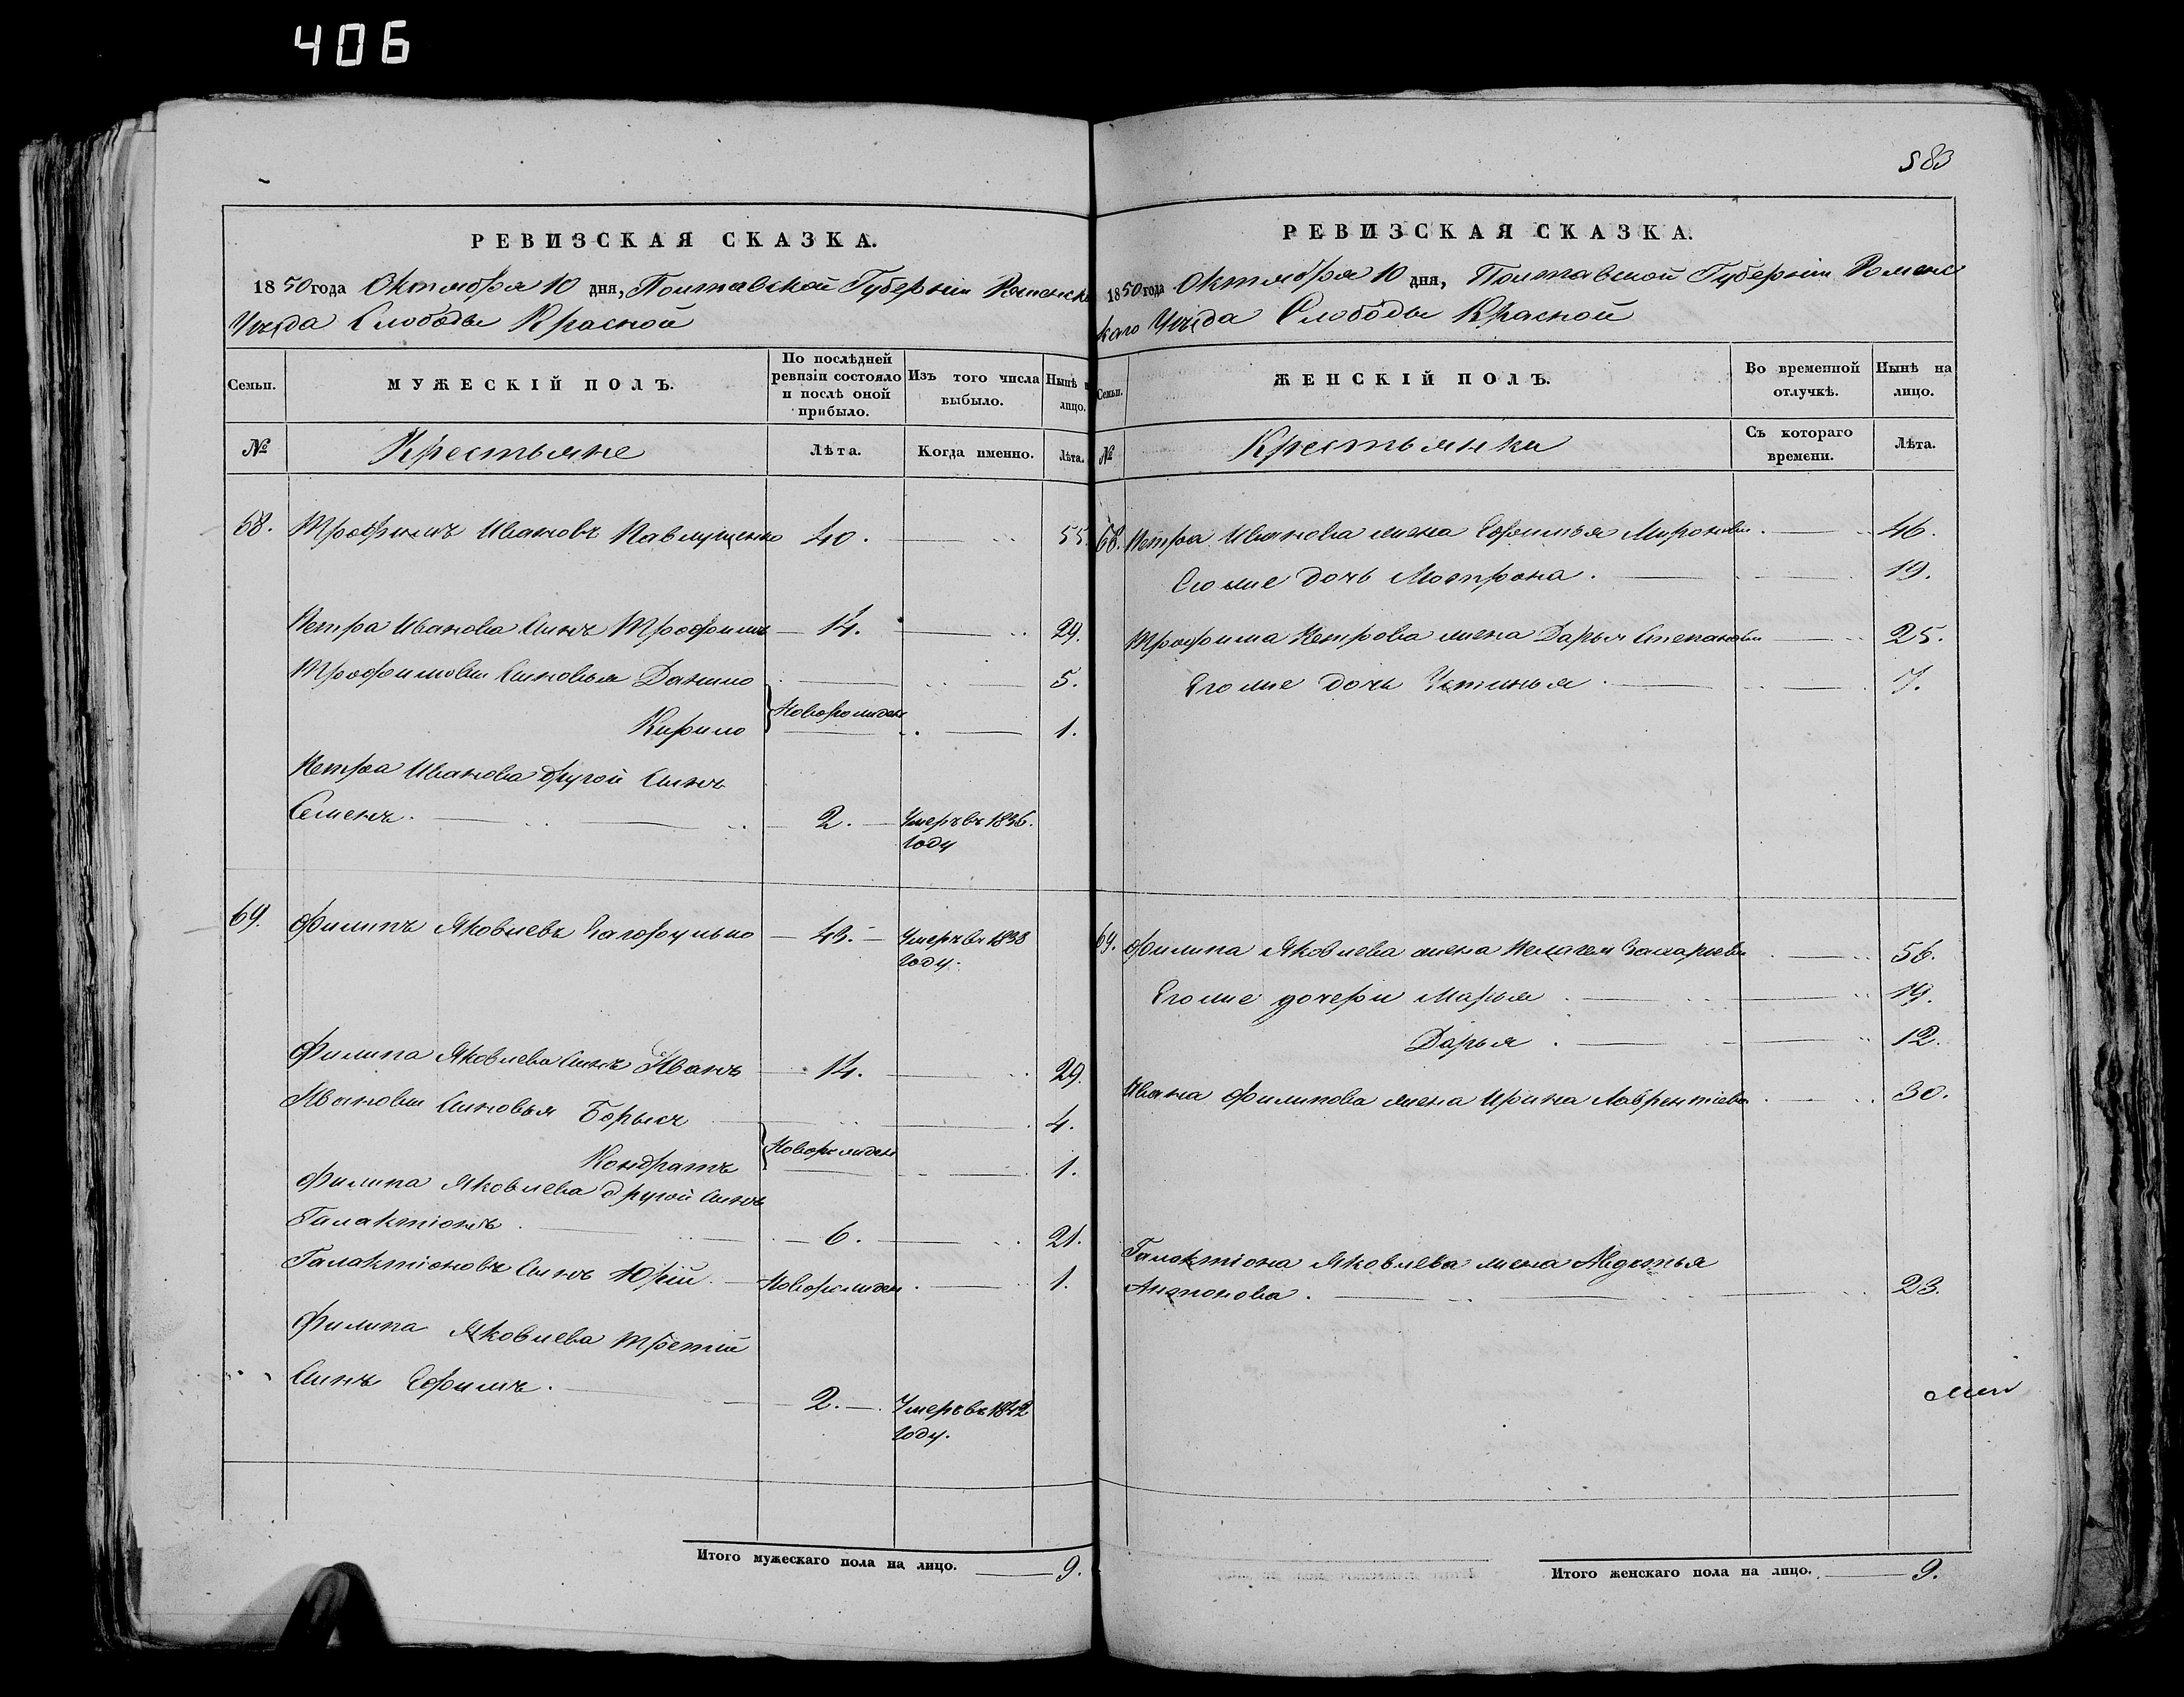 406
РЕВИЗСКАЯ СКАЗКА.
1850 года Октября 10 дня, Полтавской Губерніи Роменска
Уѣзда Слободы Красной
Семьи. МУЖЕСКІЙ ПОЛЪ. По послѣдней ревизіи состояло и послѣ оной прибыло. Изъ того числа выбыло. Нынѣ н лицо.
№ Крестьяне Лѣта. Когда именно. Лѣта.
68. Трофимъ Ивановъ Павлущенко 40. 55.
Петра Иванова Сынъ Трофимъ 14. 29.
Трофимовы Сыновья Данило 5.
Кирило Новорожден 1.
Петра Иванова другой Сынъ
Семенъ. 2. Умеръ въ 1836.
Году
69. Филипъ Яковлевъ 43. Умеръ въ 1838
Году.
Филипа Яковлева Сынъ Иванъ 14. 29.
Ивановы Сыновья Борысъ 4.
Кондратъ Новорожден 1.
Филипа Яковлева другой Сынъ
Галактіонъ 6. 21.
Галактіоновъ Сынъ Юрій Новорожден 1.
Филипа Яковлева третій
Сынъ Ефимъ. 2. Умеръ въ 1842
Году.
Итого мужескаго пола на лицо. 9.
583
РЕВИЗСКАЯ СКАЗКА.
1850 года Октября 10 дня, Полтавской Губерніи Роменс
каго Уѣзда Слободы Красной
Семьи. ЖЕНСКІЙ ПОЛЪ. Во временной отлучкѣ. Нынѣ на лицо.
№ Крестьянки Съ котораго времени. Лѣта.
68. Петра Иванова жена Ефимья Миронова 46.
Его же дочь Мотрона. 19.
Трофима Петрова жена Дарья Степанова 25.
Его же дочь Устинья 7.
69. Филипа Яковлева жена Пелагея Захарьева 56.
Его же дочери Марья 19.
Дарья 12.
Ивана Филипова жена Ирина Лаврентіева 30.
Галактіона Яковлева жена Авдотья
Антонова. 23.
Итого женскаго пола на лицо. 9.